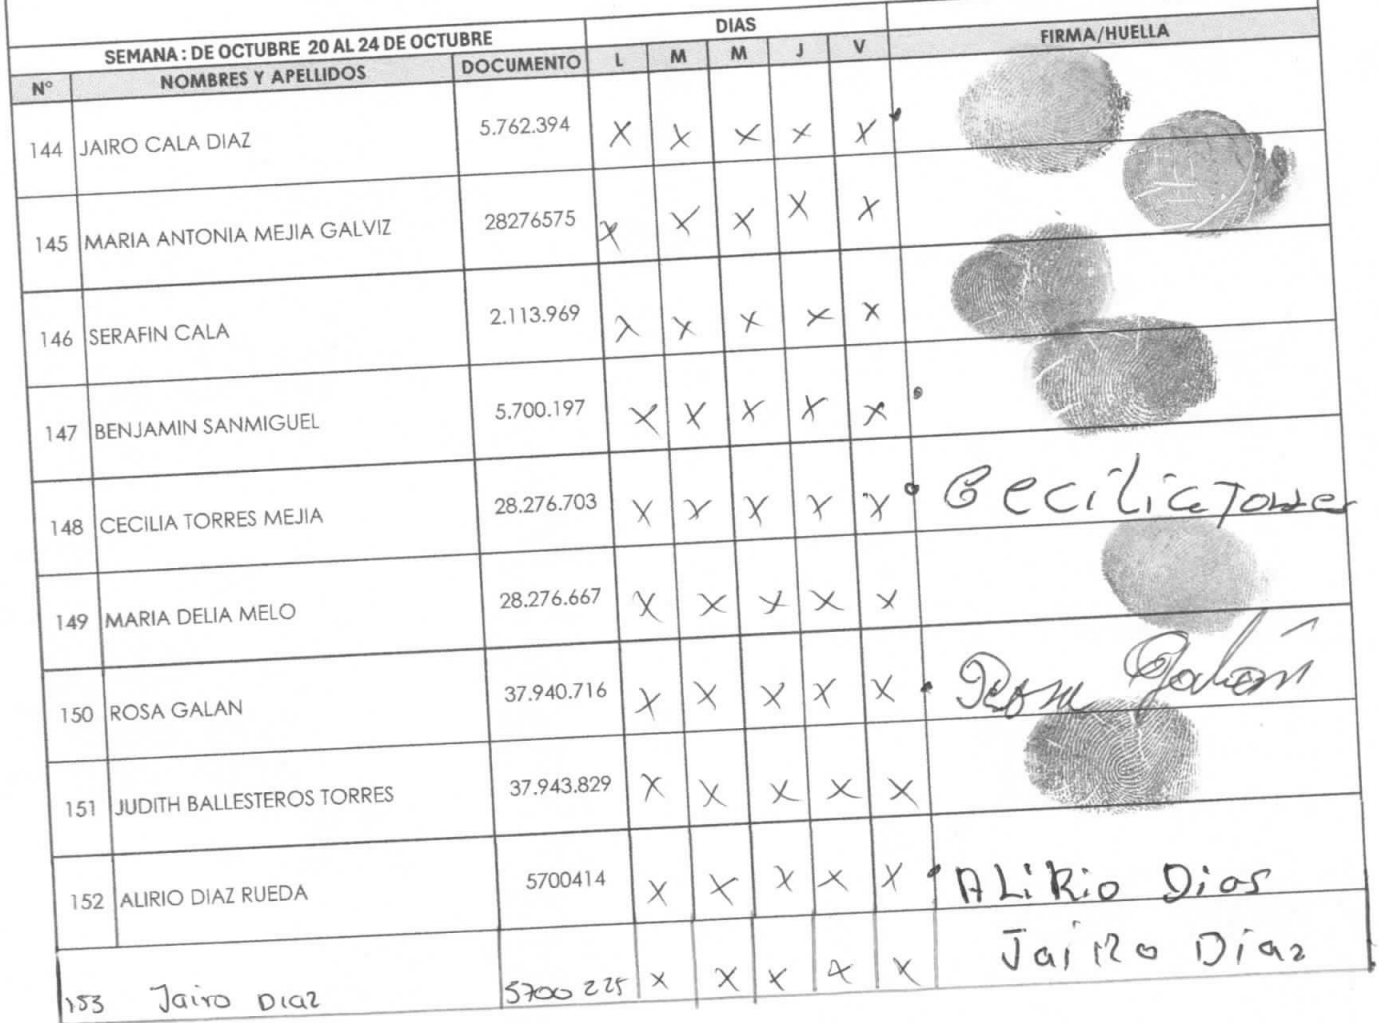 DIAS
SEMANA: DE OCTUBRE 20 AL 24 DE OCTUBRE FIRMA/HUELLA
N° NOMBRES Y APELLIDOS DOCUMENTO L M M J V
144 JAIRO CALA DIAZ 5.762.394 X X X X X
145 MARIA ANTONIA MEJIA GALVIZ 28276575 X X X X X
146 SERAFIN CALA 2.113.969 X X X X X
147 BENJAMIN SANMIGUEL 5.700.197 X X X X X
148 CECILIA TORRES MEJIA 28.276.703 X X X X X Cecilia Torres
149 MARIA DELIA MELO 28.276.667 X X X X X
150 ROSA GALAN 37.940.716 X X X X X Rosa Galán
151 JUDITH BALLESTEROS TORRES 37.943.829 X X X X X
152 ALIRIO DIAZ RUEDA 5700414 X X X X X ALiRio Dias
153 Jairo DIaz 5700225 X X X X X JaiRo Díaz